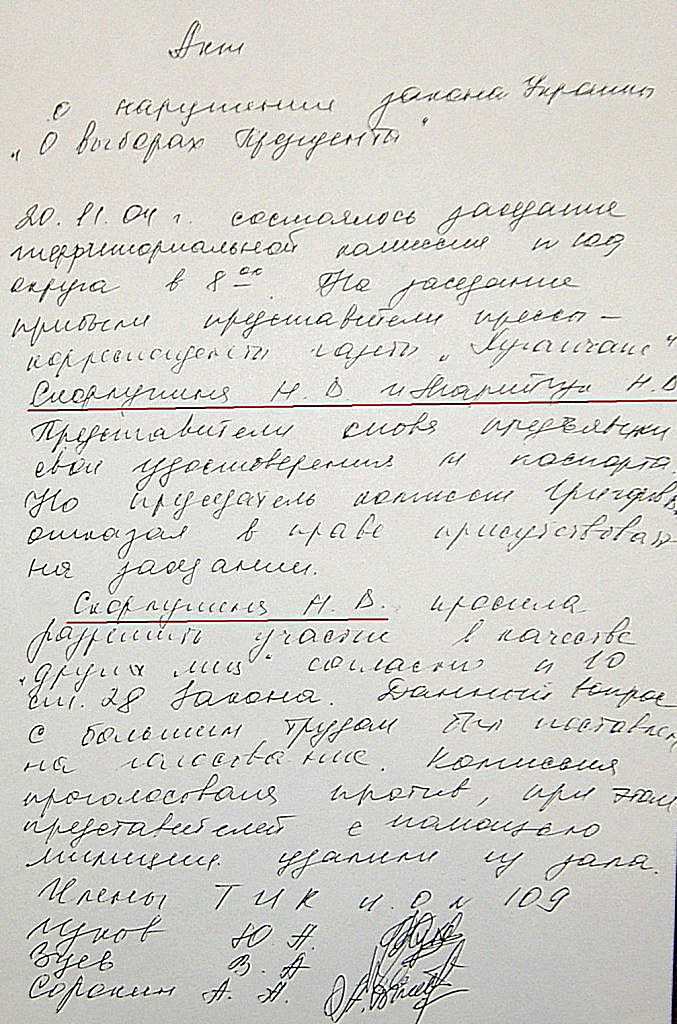 Акт
о нарушении закона Украины
"О выборах Президента"
20.11.04 г. состоялось заседание
территориальной комиссии № 109
округа в 8 00. На заседание
прибыли представители прессы –
корреспонденты газеты „Луганчане"
Скорпушиня Н. В и Н. В
Представители снова предъявили
свои удостоверения и паспорта.
Но председатель комиссии
отказал в праве присутствовать
на заседании.
Скорпушиня Н. В. просила
разрешить участие в качестве
"других лиц" согласно п 10
ст. 28 Закона. Данный вопрос
с большим трудом был поставлен
на голосование. Комиссия
проголосовала против, при этом
представителей с помощью
милиции удалили из зала.
Члены Т И К и. о № 109
Ю. А.
Зуев В. А
Сорокин А. А.